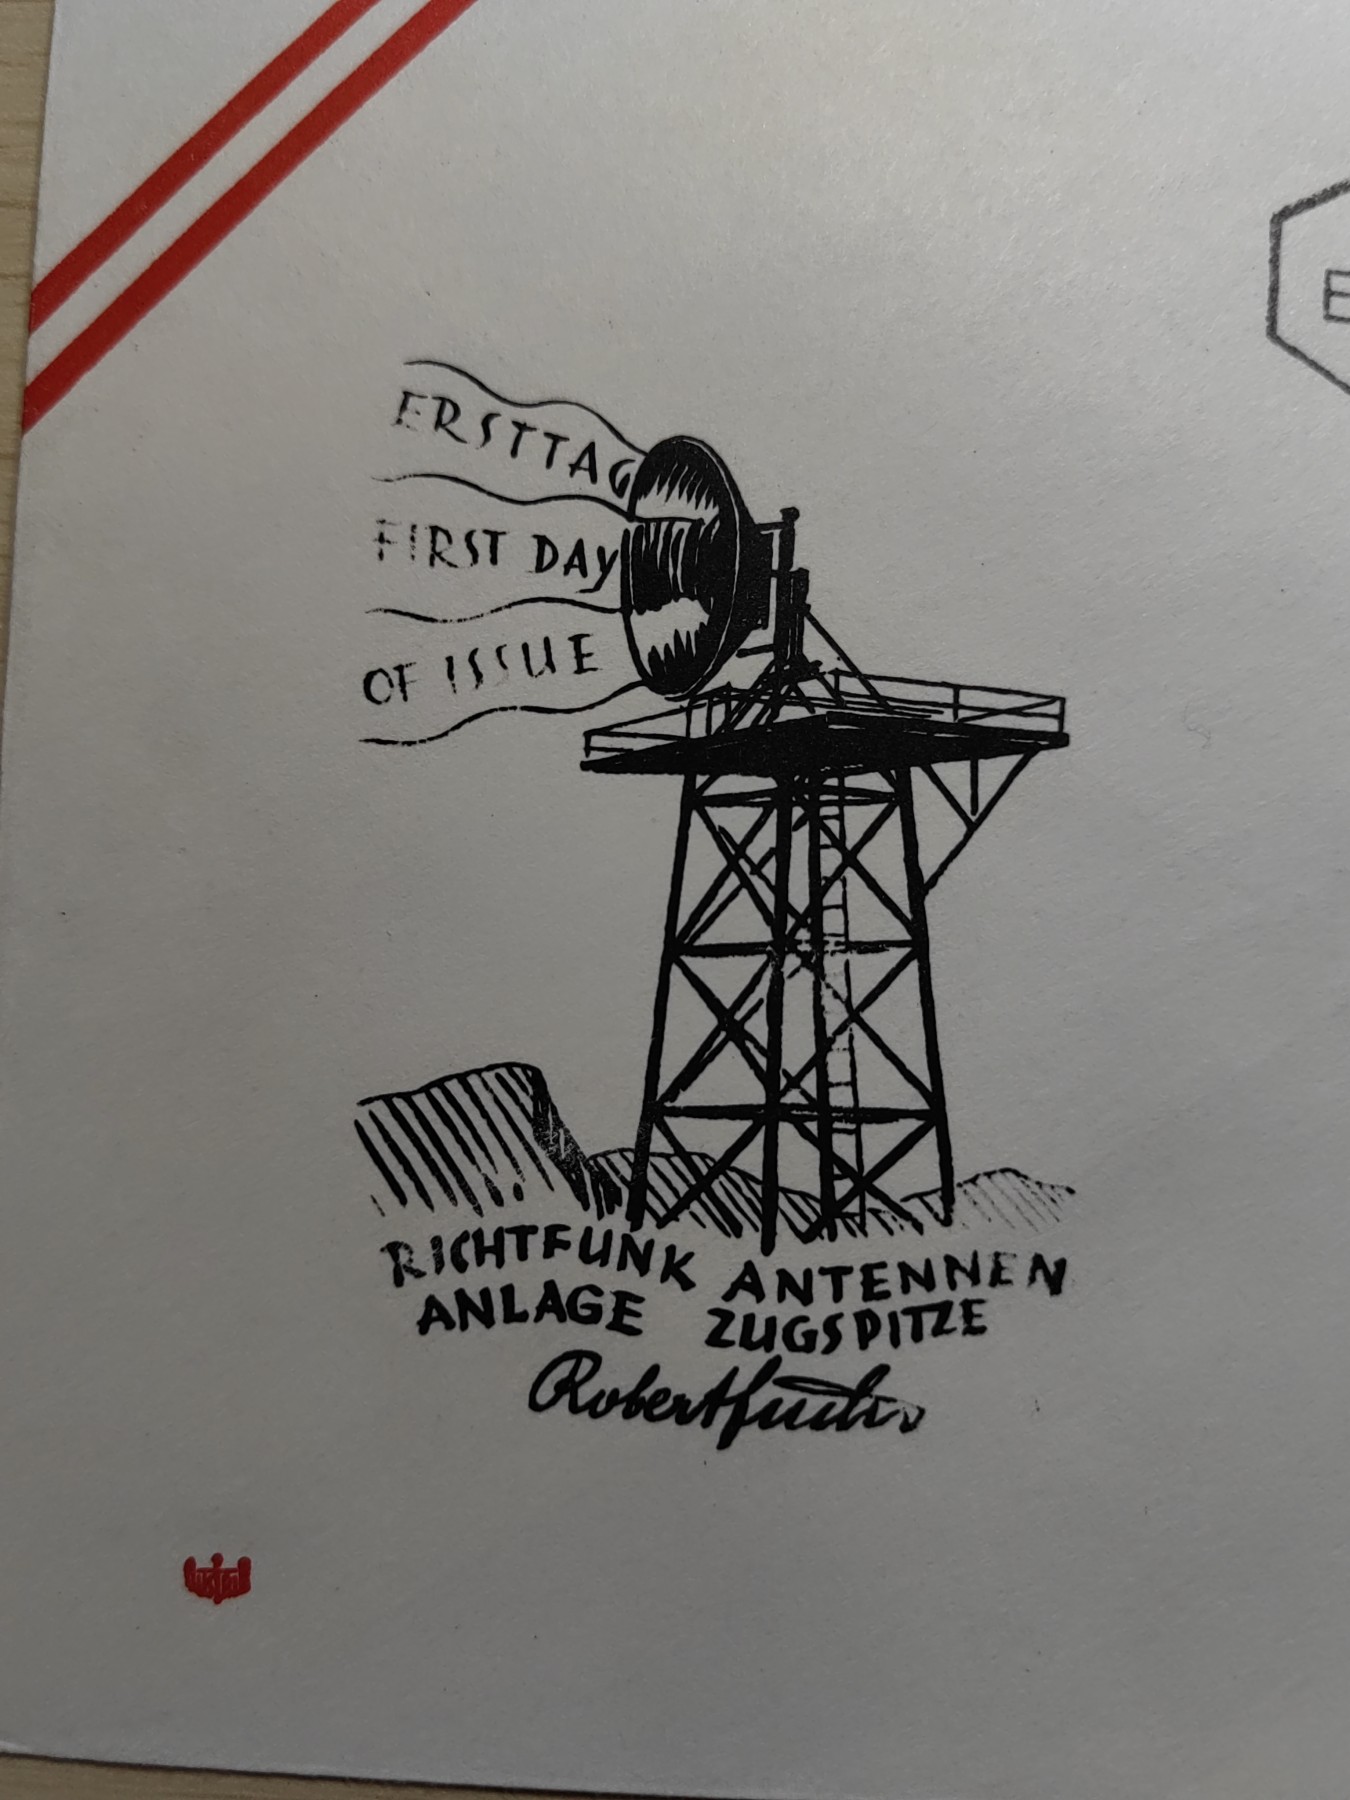 ERSTTAG
FIRST DAY
OF ISSUE
RICHTFUNK ANTENNEN
ANLAGE ZUGSPITZE
Robert Fuchs